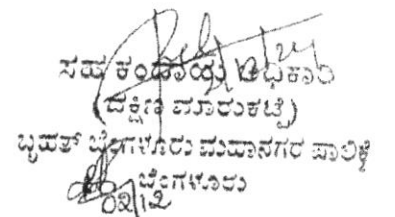 ಸಹ ಕಂದಾಯ ಅಧಿಕಾರಿ
(ದಕ್ಷಿಣ ಮಾರುಕಟ್ಟೆ)
ಬೃಹತ್ ಬೆಂಗಳೂರು ಮಹಾನಗರ ಪಾಲಿಕೆ
ಬೆಂಗಳೂರು